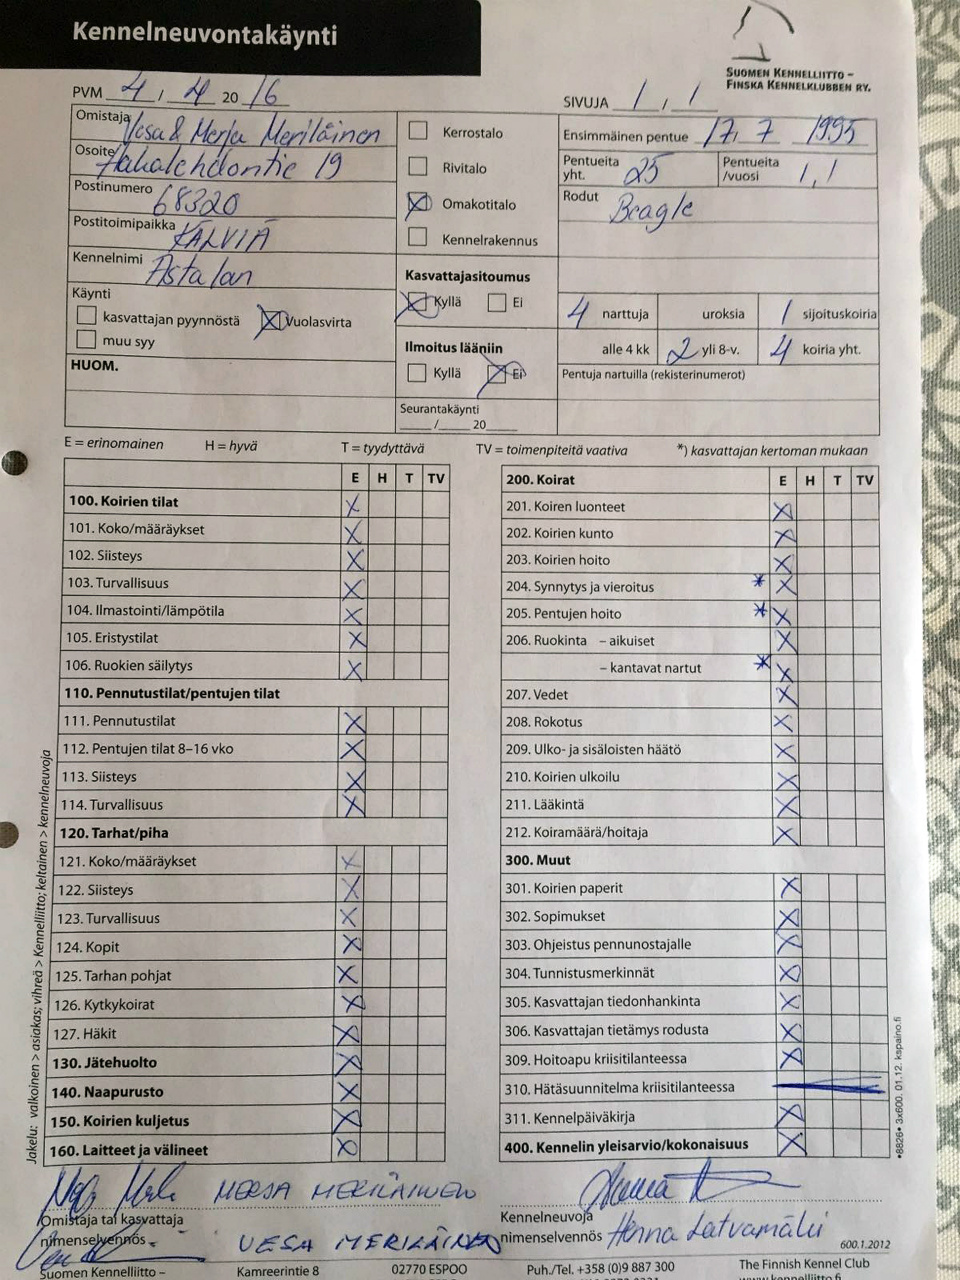 Kennelneuvontakäynti
SUOMEN KENNELLIITTO –
FINSKA KENNELKLUBBEN RY.
PVM 4 / 4 20 16
SIVUJA 1 / 1
Omistaja Vesa & Merja Meriläinen
Osoite Hakalehdontie 19
Postinumero 68320
Postitoimipaikka KÄLVIÄ
Kennelnimi Astalan
Käynti
kasvattajan pyynnöstä Vuolasvirta
muu syy
HUOM.
Kerrostalo
Rivitalo
Omakotitalo
Kennelrakennus
Kasvattajasitoumus
Kyllä Ei
Ilmoitus lääniin
Kyllä Ei
Seurantakäynti
/ 20
Ensimmäinen pentue 17, 7 1995
Pentueita yht. 25 Pentueita /vuosi 1,1
Rodut Beagle
4 narttuja uroksia 1 sijoituskoiria
alle 4 kk 2 yli 8-v. 4 koiria yht.
Pentuja nartuilla (rekisterinumerot)
E = erinomainen H = hyvä T = tyydyttävä TV = toimenpiteitä vaativa *) kasvattajan kertoman mukaan
E H T TV
100. Koirien tilat X
101. Koko/määräykset X
102. Siisteys X
103. Turvallisuus X
104. Ilmastointi/lämpötila X
105. Eristystilat X
106. Ruokien säilytys X
110. Pennutustilat/pentujen tilat
111. Pennutustilat X
112. Pentujen tilat 8–16 vko X
113. Siisteys X
114. Turvallisuus X
120. Tarhat/piha
121. Koko/määräykset X
122. Siisteys X
123. Turvallisuus X
124. Kopit X
125. Tarhan pohjat X
126. Kytkykoirat X
127. Häkit X
130. Jätehuolto X
140. Naapurusto X
150. Koirien kuljetus X
160. Laitteet ja välineet X
200. Koirat E H T TV
201. Koiren luonteet X
202. Koirien kunto X
203. Koirien hoito X
204. Synnytys ja vieroitus * X
205. Pentujen hoito * X
206. Ruokinta – aikuiset X
– kantavat nartut * X
207. Vedet X
208. Rokotus X
209. Ulko- ja sisäloisten häätö X
210. Koirien ulkoilu X
211. Lääkintä X
212. Koiramäärä/hoitaja X
300. Muut
301. Koirien paperit X
302. Sopimukset X
303. Ohjeistus pennunostajalle X
304. Tunnistusmerkinnät X
305. Kasvattajan tiedonhankinta X
306. Kasvattajan tietämys rodusta X
309. Hoitoapu kriisitilanteessa X
310. Hätäsuunnitelma kriisitilanteessa
311. Kennelpäiväkirja X
400. Kennelin yleisarvio/kokonaisuus X
Jakelu: valkoinen > asiakas; vihreä > Kennelliitto; keltainen > kennelneuvoja
•8826• 3x600. 01.12. kspaino.fi
MERILÄINEN
Omistaja tai kasvattaja
nimenselvennös
VESA MERILÄINEN
Kennelneuvoja
nimenselvennös Henna Latvamäki
600.1.2012
Suomen Kennelliitto – Kamreerintie 8 02770 ESPOO Puh./Tel. +358 (0)9 887 300 The Finnish Kennel Club
www.kennelliitto.fi